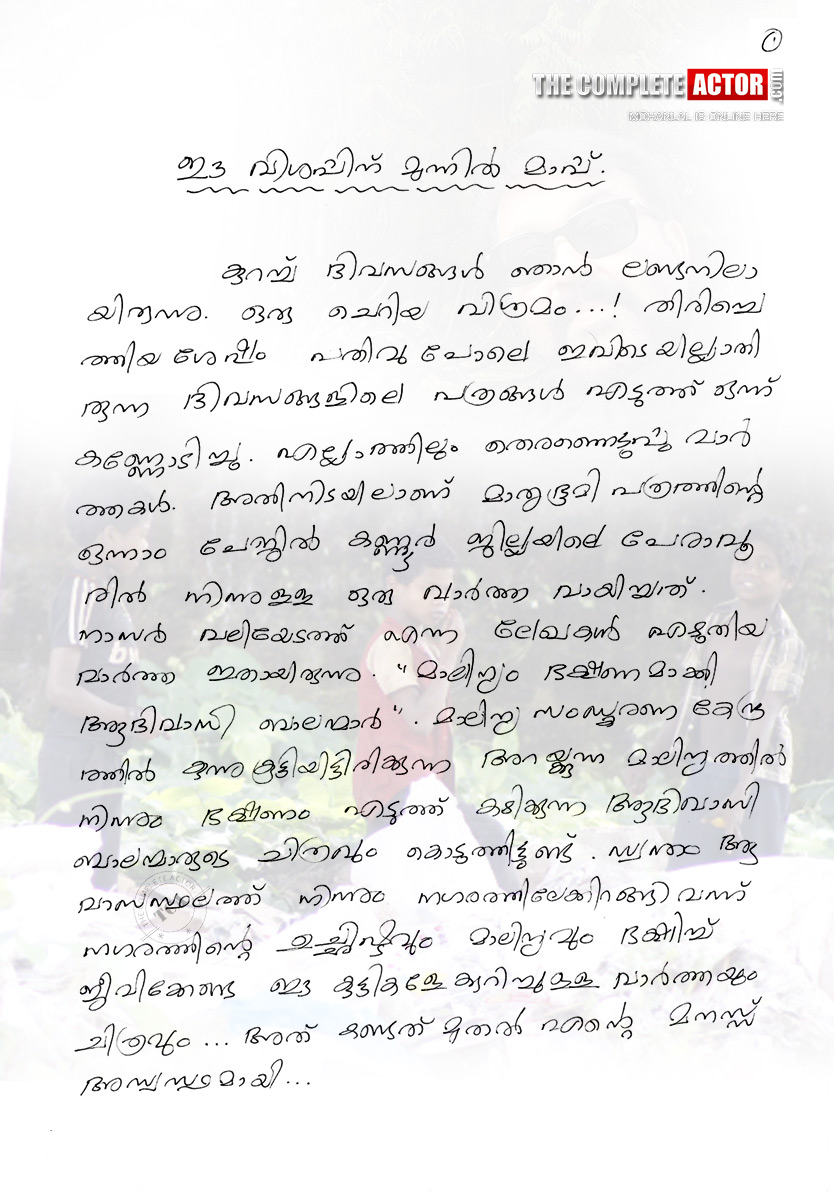 ۱
THE COMPLETE ACTOR .com
MOHANLAL IS ONLINE HERE
ഈ വിശപ്പിന് മുന്നിൽ മാപ്പ്.
കുറച്ച് ദിവസങ്ങൾ ഞാൻ ലണ്ടനിലാ
യിരുന്നു. ഒരു ചെറിയ വിശ്രമം...! തിരിച്ചെ
ത്തിയ ശേഷം പതിവു പോലെ ഇവിടെയില്ലാതി
രുന്ന ദിവസങ്ങളിലെ പത്രങ്ങൾ എടുത്ത് ഒന്ന്
കണ്ണോടിച്ചു. എല്ലാത്തിലും തെരഞ്ഞെടുപ്പു വാർ
ത്തകൾ. അതിനിടയിലാണ് മാതൃഭൂമി പത്രത്തിന്റെ
ഒന്നാം പേജിൽ കണ്ണൂർ ജില്ലയിലെ പേരാവൂ
രിൽ നിന്നുള്ള ഒരു വാർത്ത വായിച്ചത്.
നാസർ വലിയേടത്ത് എന്ന ലേഖകൻ എഴുതിയ
വാർത്ത ഇതായിരുന്നു. "മാലിന്യം ഭക്ഷണമാക്കി
ആദിവാസി ബാലന്മാർ". മാലിന്യ സംസ്ക്കരണ കേന്ദ്ര
ത്തിൽ കുന്നുകൂട്ടിയിട്ടിരിക്കുന്ന അറയ്ക്കുന്ന മാലിന്യത്തിൽ
നിന്നും ഭക്ഷണം എടുത്ത് കഴിക്കുന്ന ആദിവാസി
ബാലന്മാരുടെ ചിത്രവും കൊടുത്തിട്ടുണ്ട്. സ്വന്തം ആ
വാസസ്ഥലത്ത് നിന്നും നഗരത്തിലേക്കിറങ്ങി വന്ന്
നഗരത്തിന്റെ ഉച്ഛിഷ്ടവും മാലിന്യവും ഭക്ഷിച്ച്
ജീവിക്കേണ്ട ഈ കുട്ടികളേക്കുറിച്ചുള്ള വാർത്തയും
ചിത്രവും... അത് കണ്ടത് മുതൽ എന്റെ മനസ്സ്
അസ്വസ്ഥമായി...